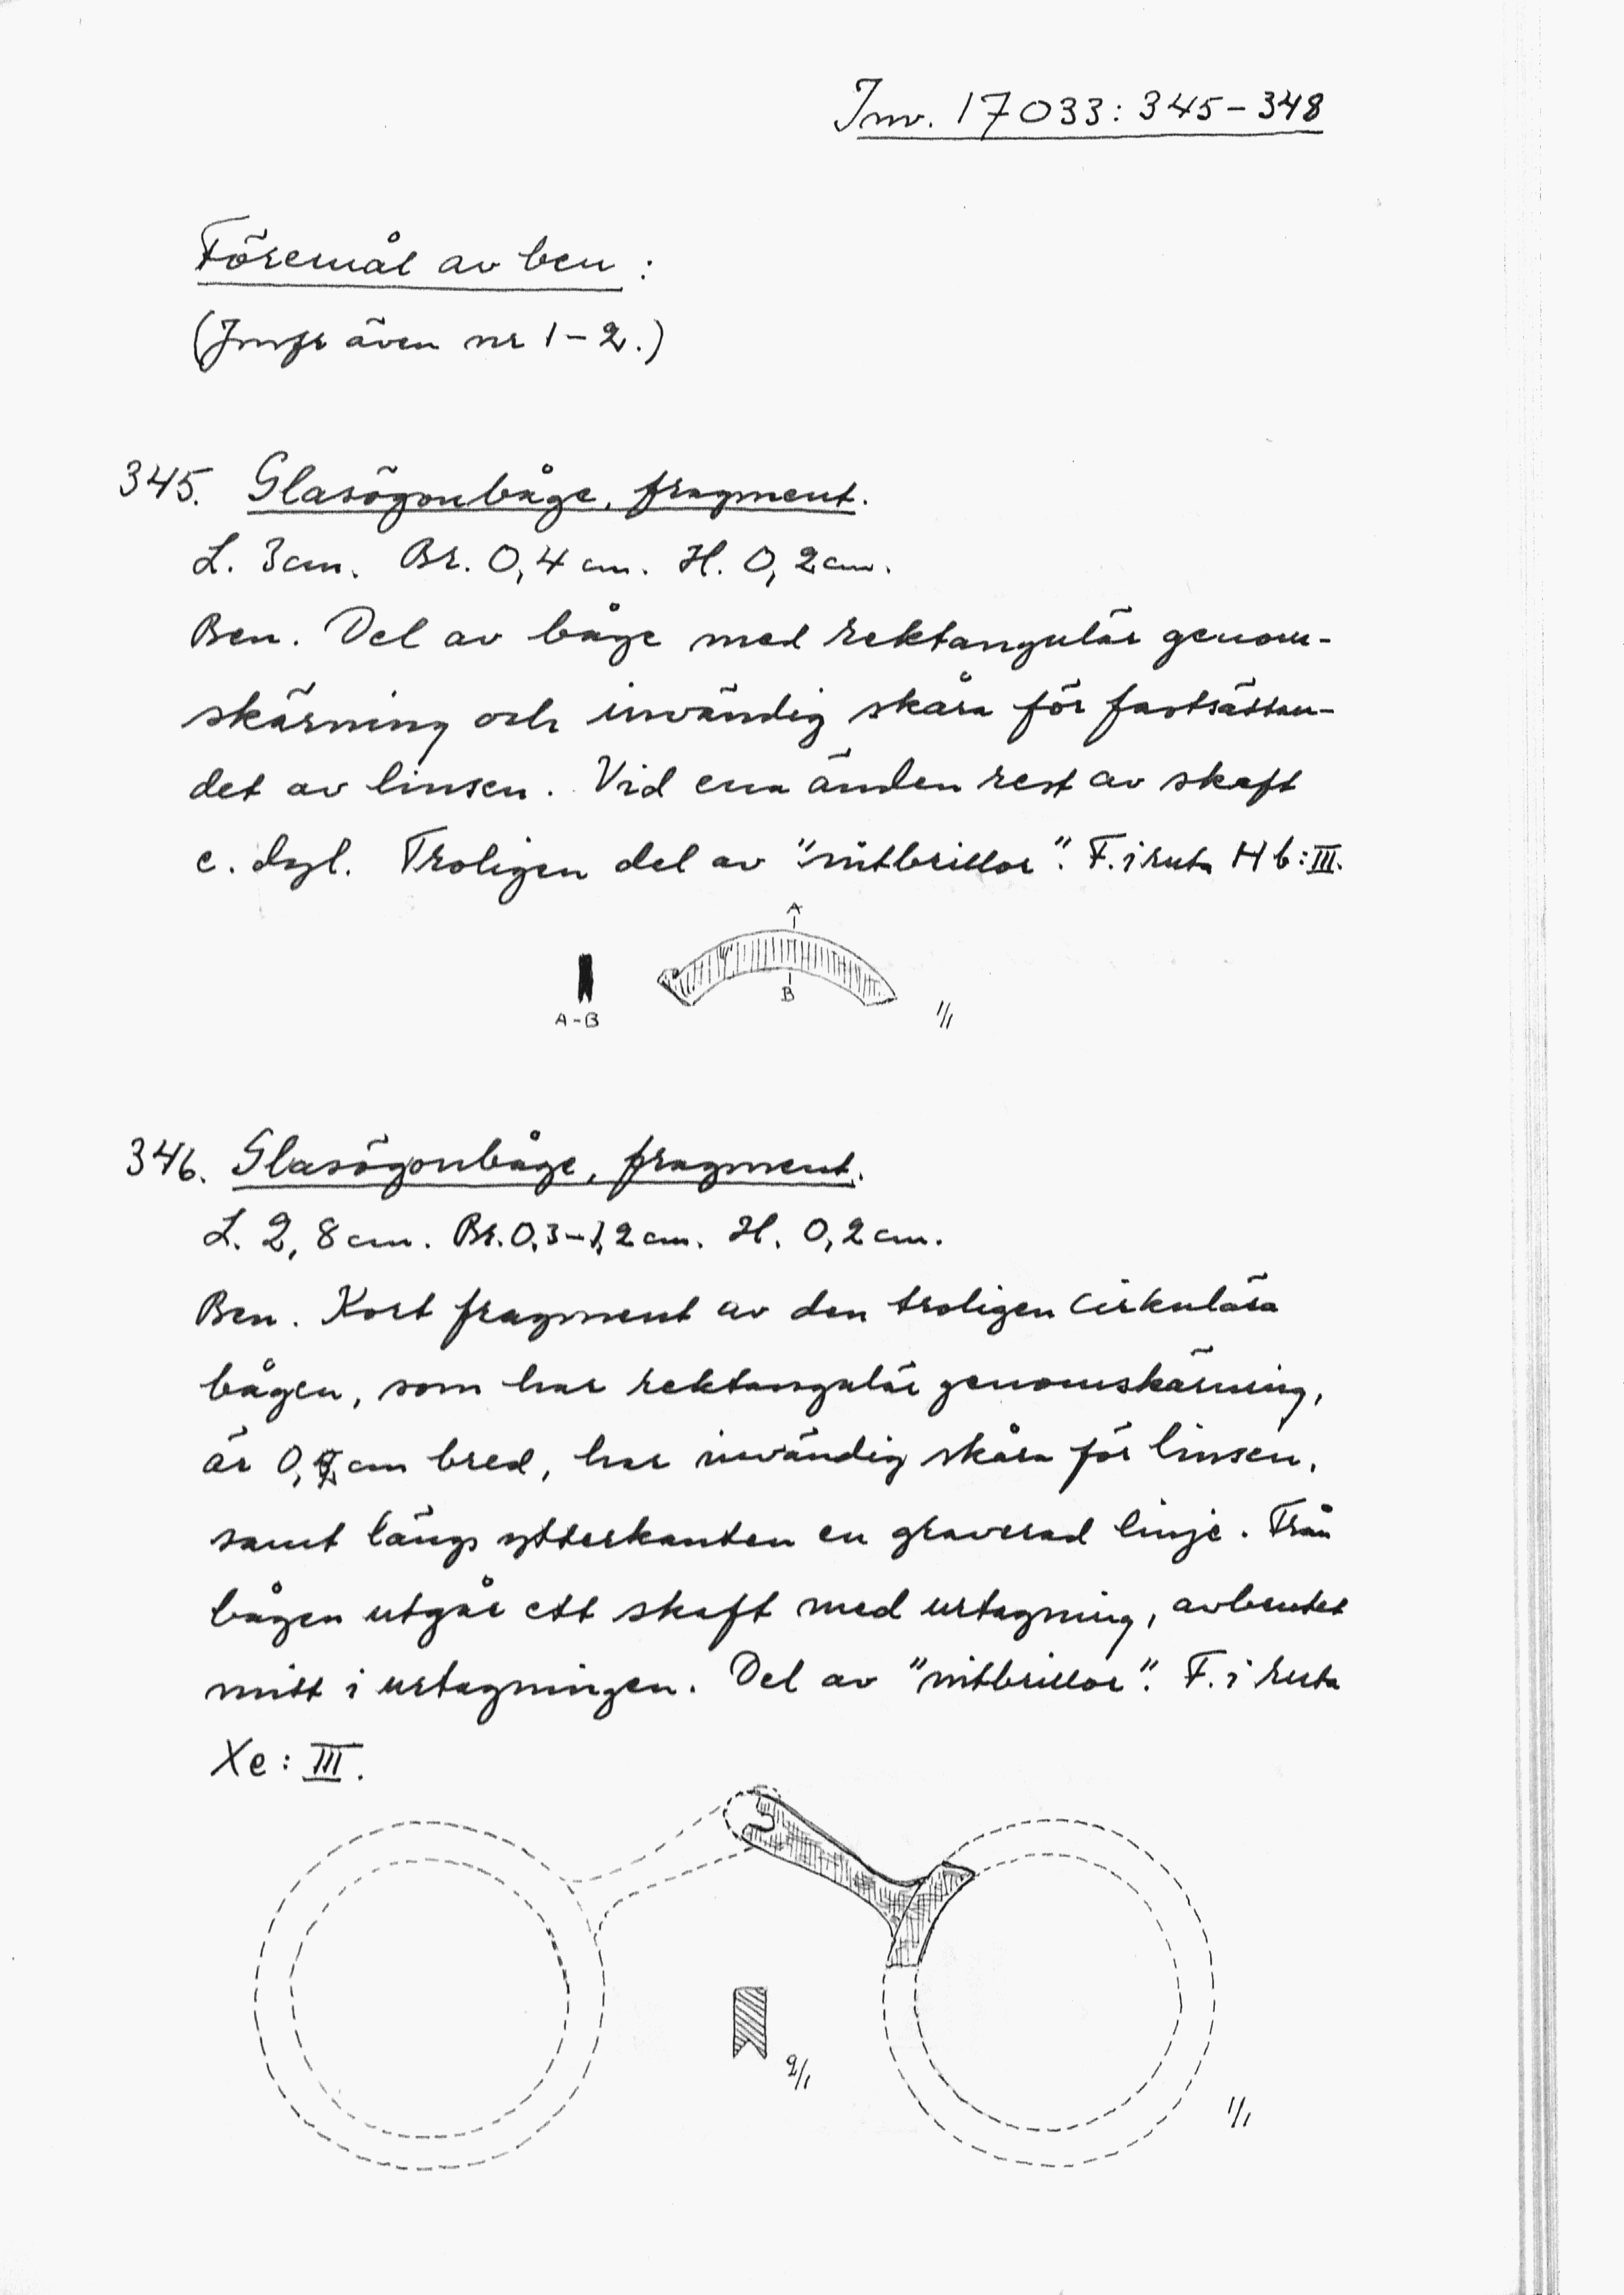 Inv. 17033:345-348
Föremål av ben:
(Jmfr även nr 1-2.)
345. Glasögonbåge, fragment.
L. 3cm. Br. 0,4 cm. H. 0,2cm.
Ben. Del av båge med rektangulär genom-
skärning och invändig skåra för fastsättan-
det av linsen. Vid ena änden rest av skaft
e. dyl. Troligen del av "nitbrillor". F. i ruta Hb:III.
A
B
A-B
1/1
346. Glasögonbåge, fragment.
L. 2,8cm. Br. 0,3-1,2cm. H. 0,2cm.
Ben. Kort fragment av den troligen cirkulära
bågen, som har rektangulär genomskärning,
är 0, cm bred, har invändig skåra för linsen,
samt längs ytterkanten en graverad linje. Från
bågen utgår ett skaft med urtagning, avbrutet
mitt i urtagningen. Del av "nitbrillor". F. i ruta
Xe:III.
2/1
1/1